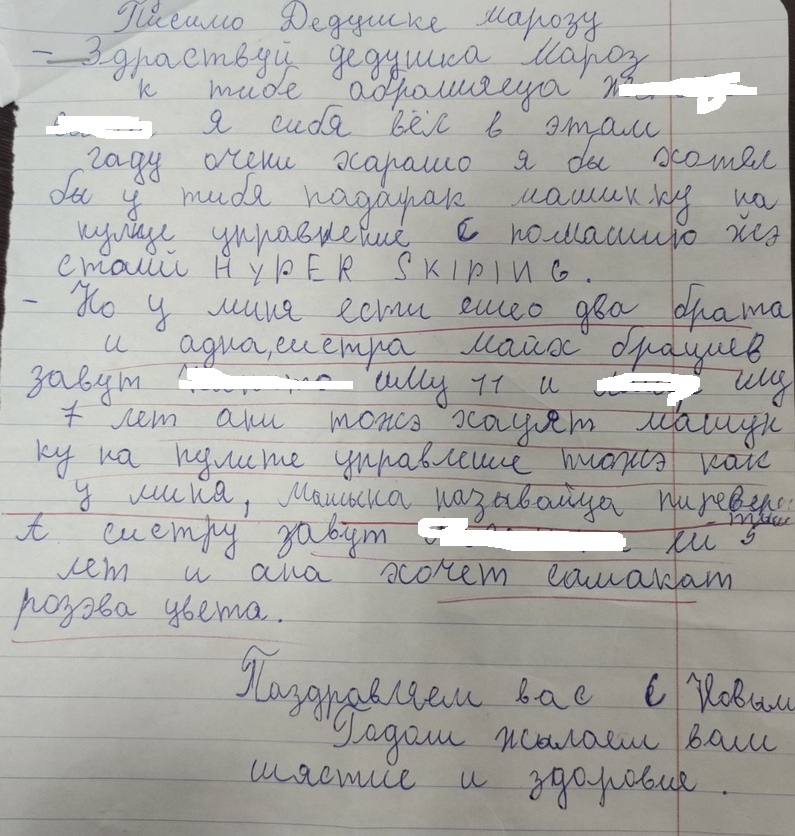 Писмо Дедушке марозу
- Здраствуй дедушка Мароз
к тибе абрашяеца
Я сибя вёл в этам
гаду очени харашо я бы хотял
бы у тибя падарак машинку на
пулце управление с помашию йсэ
сталй HYPER SKIPING.
- Но у миня ести ешео два брата
и адна, систра майх брациев
завут иму 11 и иму
7 лет ани тожэ хацят машун
ку на пулите управление тожэ как
у миня, машына называйца пиревер
тыш
А систру завут ей 5
лет и ана хочет самакат
розэва цвета.
Паздравляем вас с Новым
Годом жылаем вам
шястие и здоровие.